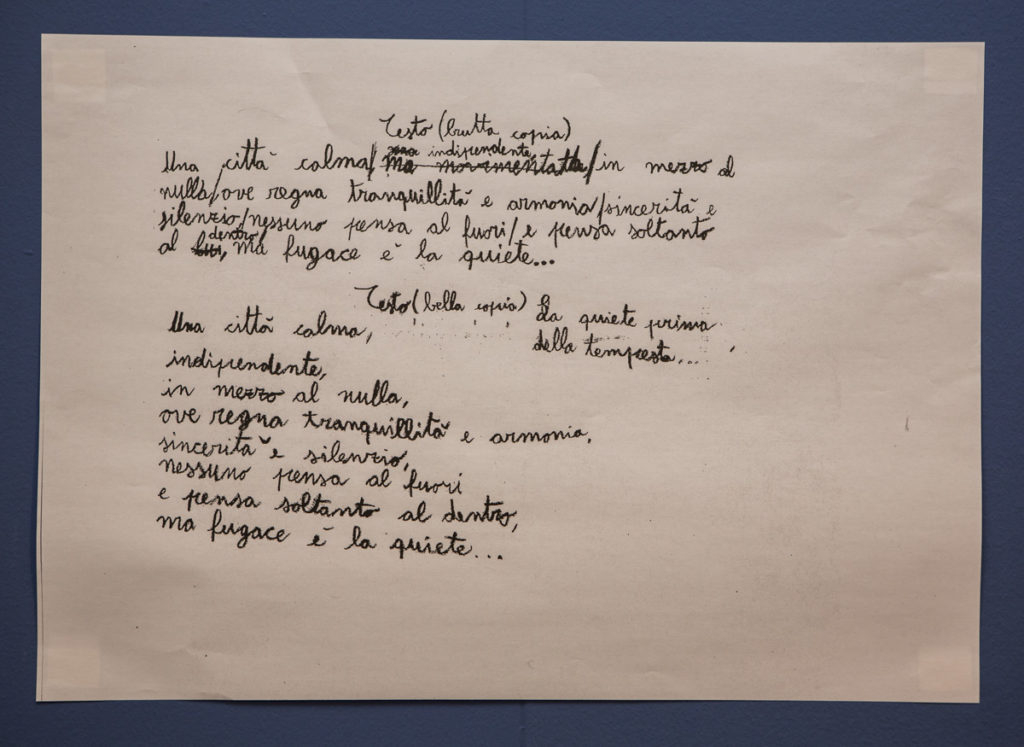 Testo (brutta copia)
indipendente,
Una città calma/ ma movimentata/in mezzo al
nulla/ove regna tranquillità e armonia/sincerità e
silenzio/nessuno pensa al fuori/e pensa soltanto
dentro,
al lui, ma fugace è la quiete...
Testo (bella copia)
La quiete prima
della tempesta...
Una città calma,
indipendente,
in mezzo al nulla,
ove regna tranquillità e armonia,
sincerità e silenzio,
nessuno pensa al fuori
e pensa soltanto al dentro,
ma fugace è la quiete...